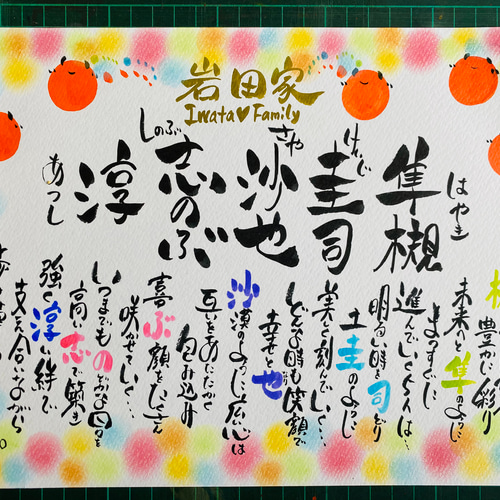 岩田家
Iwata♥Family
はやき
隼槻
けいじ
圭司
さや
沙也
しのぶ
志のぶ
あつし
淳
豊かに彩り
未来へと隼のように
まっすぐに
進んでいく
明るい時を司どり
土圭のように
美を刻んでいく…
どんな時も笑顔で
幸せと也
沙漠のように広い心は
互いをあたたかく
包み込み
喜ぶ顔をたくさん
咲かせていく…
いつまでものどかな日々を
高い志で築き
強く淳い絆で
支え合いながら